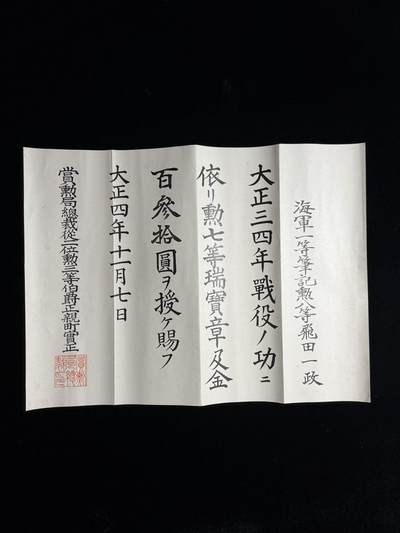 海軍一等筆記勲八等飛田一政
大正三四年戰役ノ功ニ
依リ勲七等瑞寶章及金
百參拾圓ヲ授ケ賜フ
大正四年十一月七日
賞勲局總裁從二位勲三等伯爵正親町實正